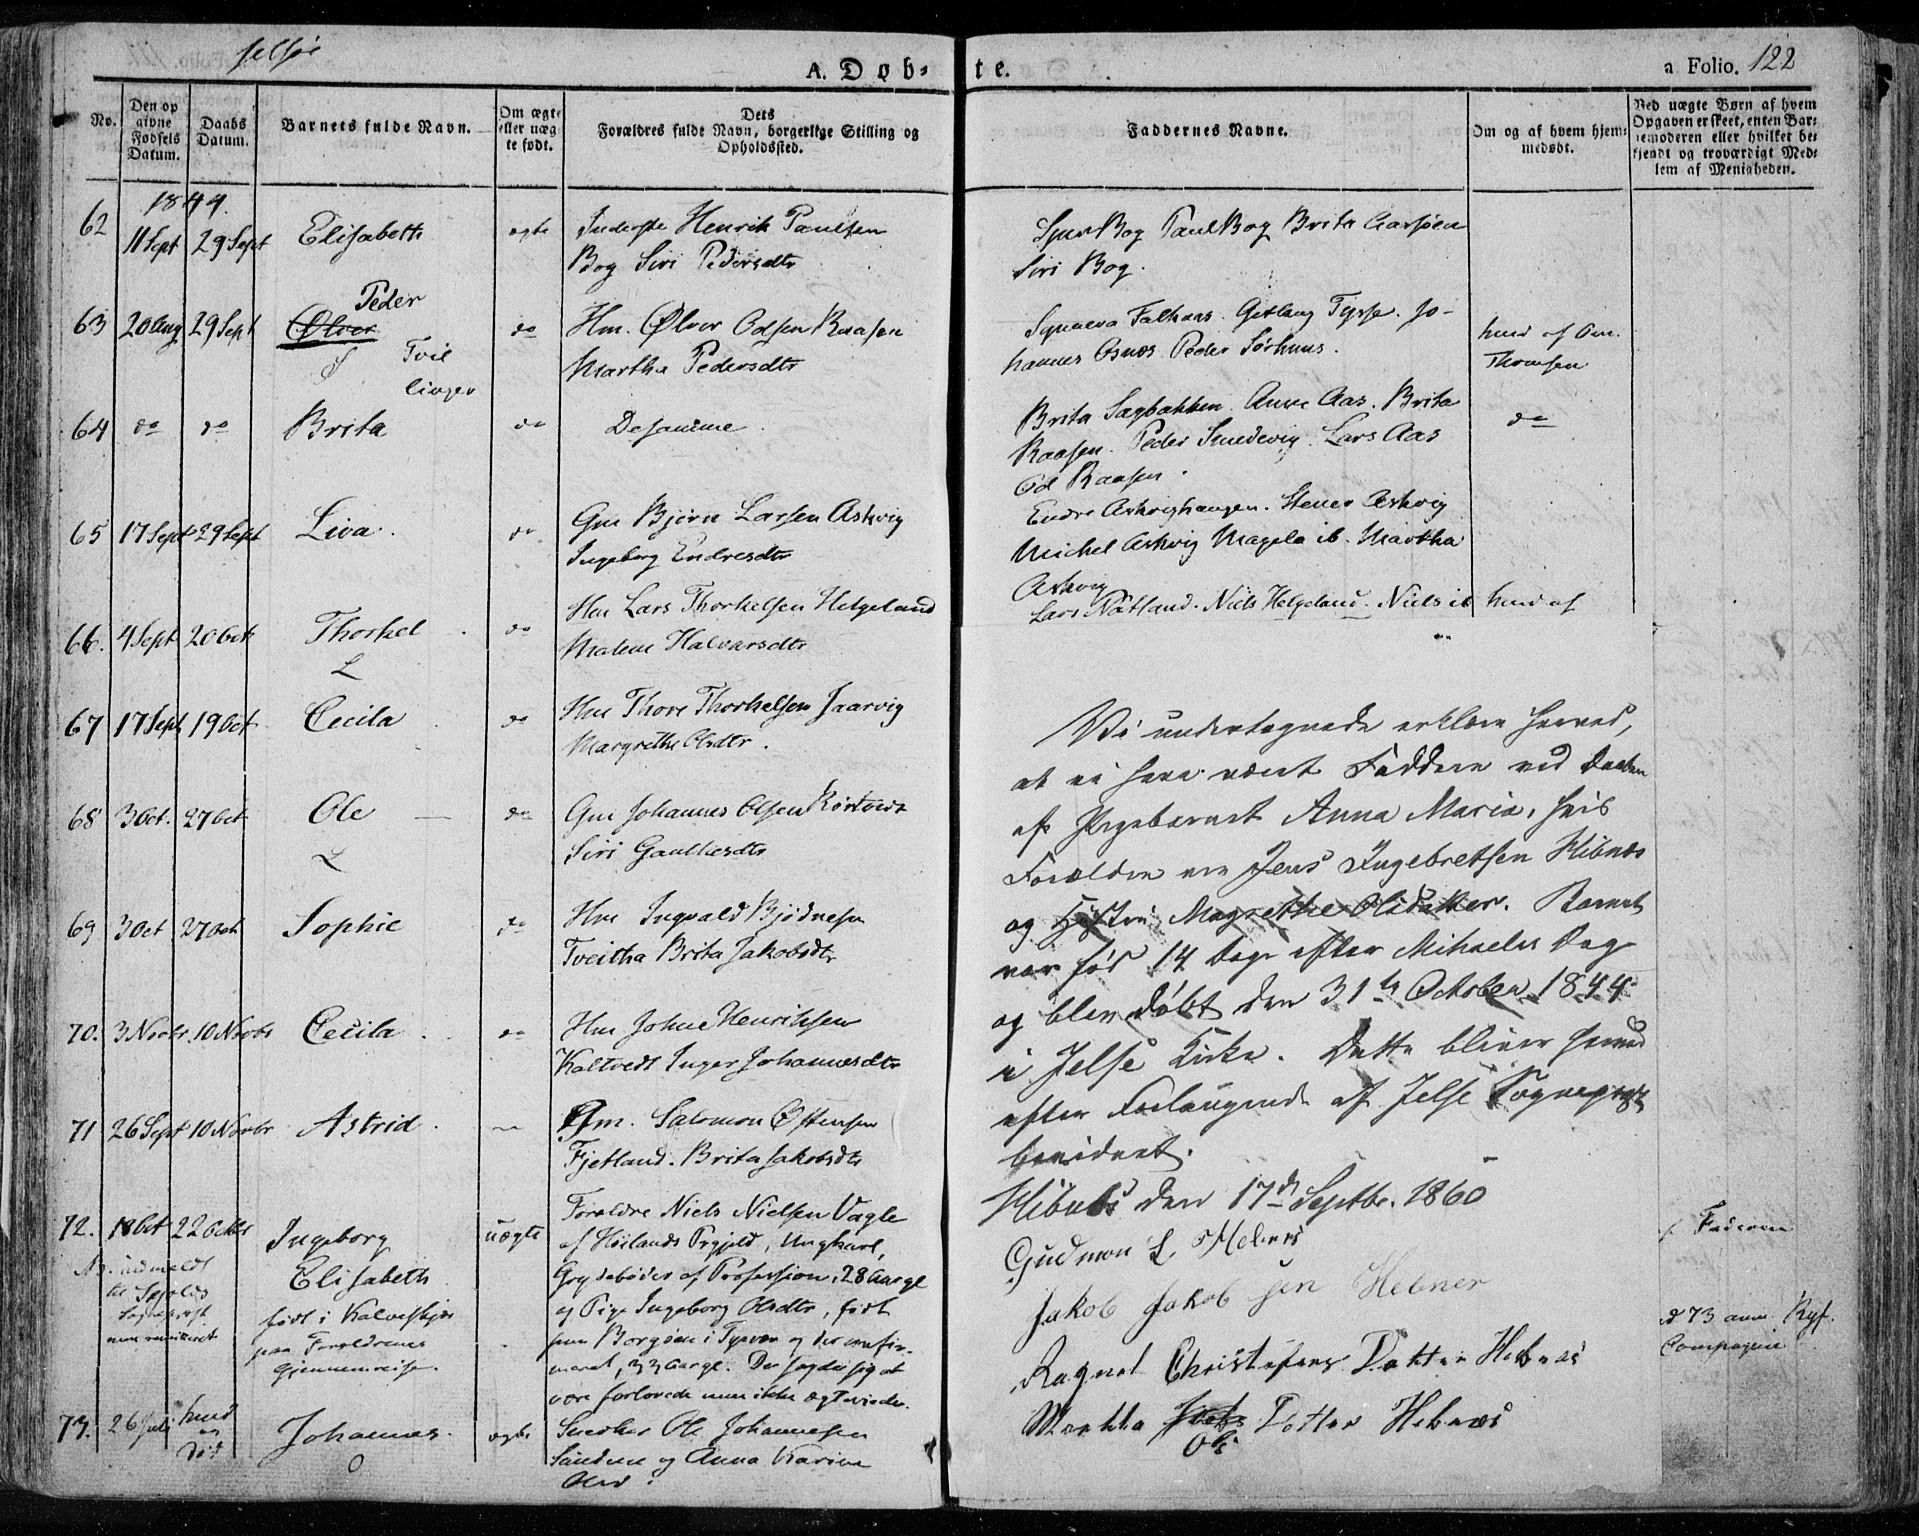 Jelsøe
A. Døb-
te.
a Folio. 122
No.
Den op
givne
Fødsels
Datum.
Daabs
Datum.
Barnets fulde Navn.
Om ægte
eller uæg
te født.
Dets
Forældres fulde Navn, borgerlige Stilling og
Opholdssted.
Faddernes Navne.
Om og af hvem hjem-
medøbt.
Ved uægte Børn af hvem
Opgaven er skeet, enten Bar-
nemoderen eller hvilket be-
kjendt og troværdigt Med-
lem af Menigheden.
1844.
62 11 Sept 29 Sept Elisabeth ægte Inderste Henrik Paulsen
Bog Siri Pedersdtr
Sjur Bog Paul Bog Brita
Siri Bog.
Peder
63 20 Aug 29 Sept Ølver do Hm. Ølver Odsen Raasen
Martha Pedersdtr
Tvil
linger
Falkaas. Tysse. Jo-
hannes Osnæs. Peder Sørhuus.
hmd af
Thomsen
64 do do Brita do Desamme.
Brita Sagbakken. Anne Aas. Brita
Raasen. Peder Smedevig. Lars Aas
Od Raasen.
do
65 17 Sept 29 Sept Liva. do Gm Bjørn Larsen Askvig
Ingeborg Endresdtr
Endre Askvighaugen. Stener Askvig
Michel Askvig Magela ib. Martha
Askvig
66. 4 Sept 20 Oct Thorkel do Hm Lars Thorkelsen Helgeland
Malene Halvarsdtr
L
Lars Nátland. Niels Helgeland. Niels ib hmd af
67 17 Sept 19 Oct Cecila do Hm Thore Thorkelsen Jaarvig
Margrethe Olsdtr.
68 3 Oct. 27 Oct Ole do Gm Johannes Olsen Rørtvedt
Siri Gautesdtr
L
69 3 Oct 27 Oct Sophie do Hm Ingvald Bjødnesen
Tveitha Brita Jakobsdtr
70. 3 Novbr 10 Novbr Cecila do Hm John Henriksen
Kaltvedt Inger Johannesdtr
71 26 Sept 10 Novbr Astrid Gm. Salomon Østensen
Fjetland. Brita Jakobsdtr
72. 18 Oct 22 Octbr Ingeborg uægte Forældre Niels Nielsen Vagle
Elisabeth
født i
paa Forældrenes
Gjennemreise.
af Høilands Prgjeld, Ungkarl,
Grydebøder af Profession, 28 Aar gl
og Pige Ingeborg Olsdtr, født
paa Borgøen i Tysvær og der confir-
meret, 33 Aar gl. De sagde sig at
være forlovede men ikke ægteviede.
f. Faderen
d 73 Ryf.
Compagnie
73. 26 Juli hmd
og
død
Johannes. ægte Snedker Ole Johannesen
Sandene og Anna Karine
Olsd.
Vi undertegnede erklære herved,
at vi have været Faddere ved Daaben
af Pigebarnet Anna Maria, hvis
Forældre ere Jens Ingebretsen Hibnæs
og Hustru Magrethe Olsdatter. Barnet
var fød 14 Dage efter Mikaelis Dag
og blev døbt den 31te October 1844
i Jelse Kirke. Dette bliver herved
efter Forlangende af Jelse Sognepræst
bevidnet.
Hibnæs den 17de Septbr. 1860
Gudmon L. Hebnes
Jakob Jakobsen Hebner
Ragnel Christofers Dotter Hebnæs
Martha Dotter Hebnæs
Ols